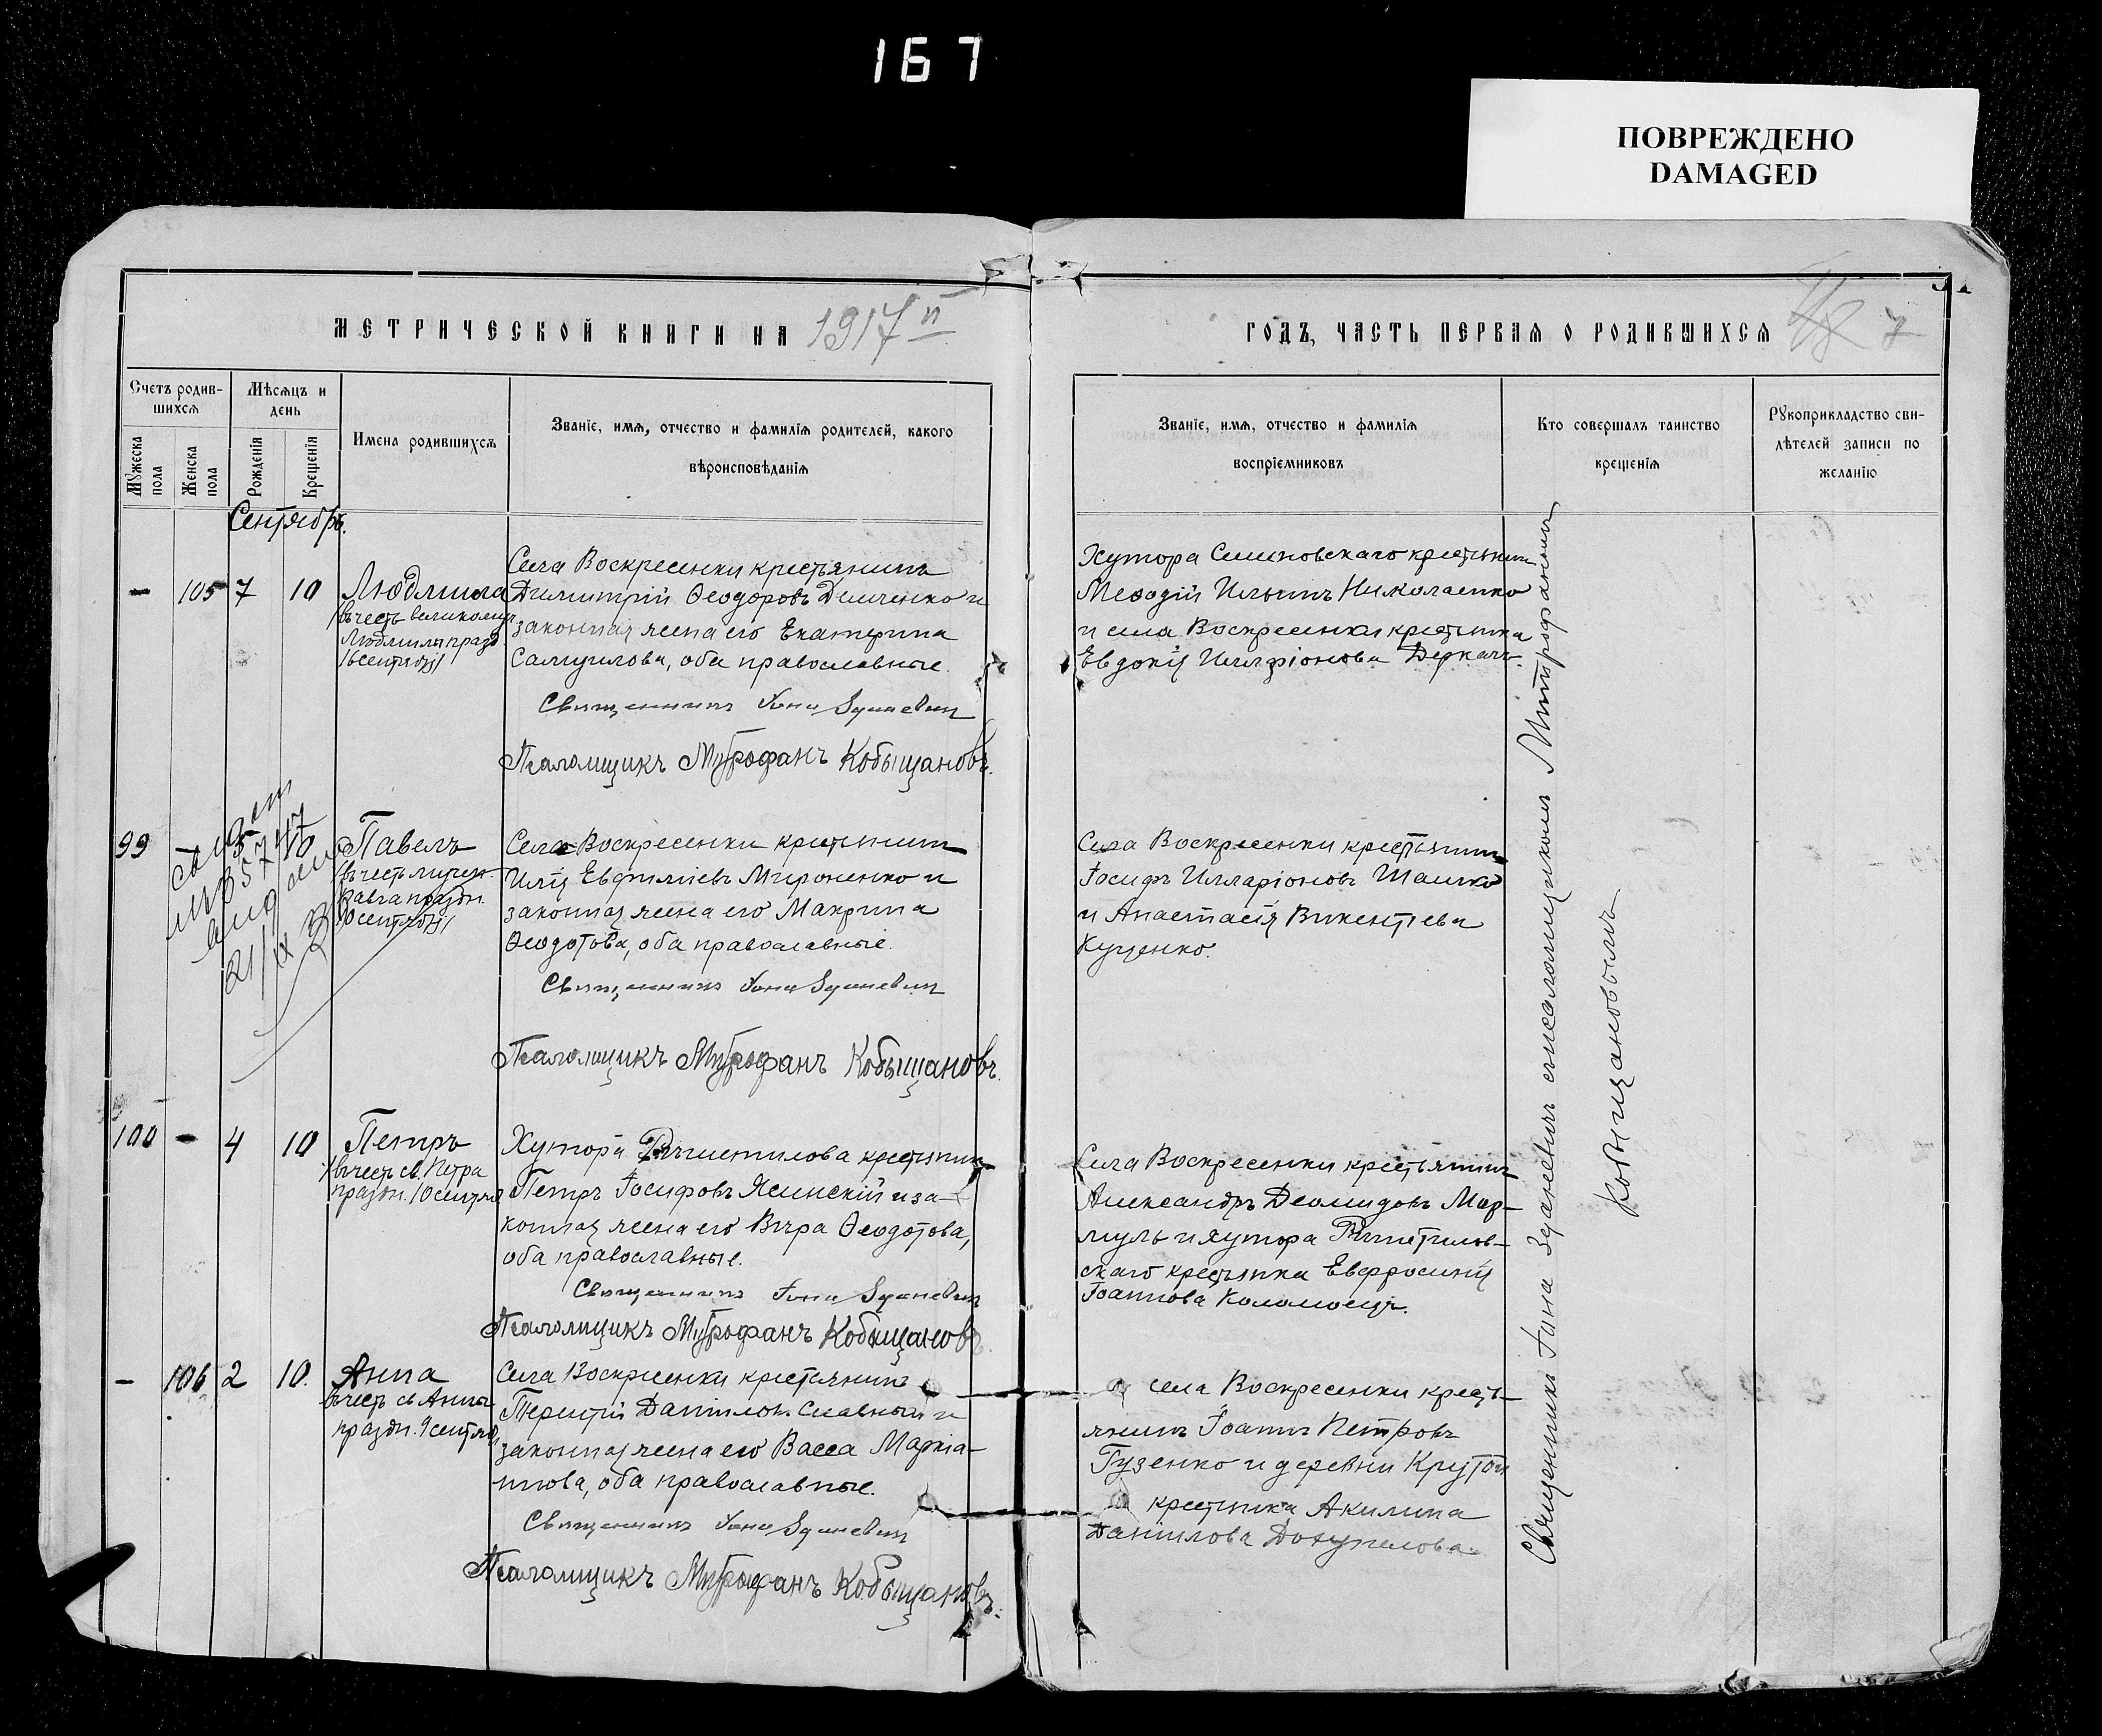 167
ПОВРЕЖДЕНО
DAMAGED
МЕТРИЧЕСКОЙ КНИГИ НА 1917
Счетъ родив-
шихся
Мужеска
пола
Женска
пола
Мѣсяцъ и
день
Рожденія
Крещенія
Имена родившихся
Званіе, имя, отчество и фамилія родителей, какого
вѣроисповѣданія
Сентябрь.
— 105 7 10 Людмила
въ честь великомуч.
Людмилы празд
16 сентября
Села Воскресенки крестьянинъ
Димитрій Ѳеодоровъ Демченко и
законная жена его Екатерина
Самуилова, оба православные.
Священникъ Іона Зданевич
Псаломщикъ Митрофанъ Кобыщановъ.
99 — 5 10 Павелъ
въ честь мучен.
Павла праздн.
10 сентября
21/IX
Села Воскресенки крестьянин
Илія Евфиміевъ Мироненко и
законная жена его Макрина
Ѳеодотова, оба православные.
Священникъ Іона Зданевич
Псаломщикъ Митрофанъ Кобыщановъ.
100 — 4 10 Петръ
въ честь св. Петра
праздн. 10 сентября
Хутора крестьянин
Петръ Іосифовъ Ясинскій и за-
конная жена его Вѣра Ѳеодотова,
оба православные.
Священникъ Іона Зданевич
Псаломщикъ Митрофанъ Кобыщановъ.
— 106 2 10. Анна
въ честь св Анны
праздн. 9 сентября
Села Воскресенки крестьянинъ
Терентій Даниловъ Славный и
законная жена его Васса Маркіа-
нова, оба православные.
Священникъ Іона Зданевич
Псаломщикъ Митрофанъ Кобыщановъ.
ГОДЪ, ЧАСТЬ ПЕРВАЯ О РОДИВШИХСЯ
Званіе, имя, отчество и фамилія
воспріемниковъ
Кто совершалъ таинство
крещенія
Рукоприкладство сви-
дѣтелей записи по
желанію
Хутора Семеновскаго крестьянин
Меѳодій Ильинъ Николаенко
и села Воскресенки крестьянка
Евдокія Илларіонова Деркачъ.
Села Воскресенки крестьянин
Іосифъ Илларіоновъ Шамко
и Анастасія Викентіева
Куценко.
Села Воскресенки крестьянинъ
Александръ Деомидовъ Мар-
муль и хутора
скаго крестьянка Евфросинія
Іоаннова Коломоецъ.
села Воскресенки кресть-
янинъ Іоаннъ Петровъ
Гузенко и деревни Крутой
крестьянка Акилина
Данилова
Священникъ Іона Зданевичъ съ псаломщикомъ Митрофаномъ
Кобыщановымъ